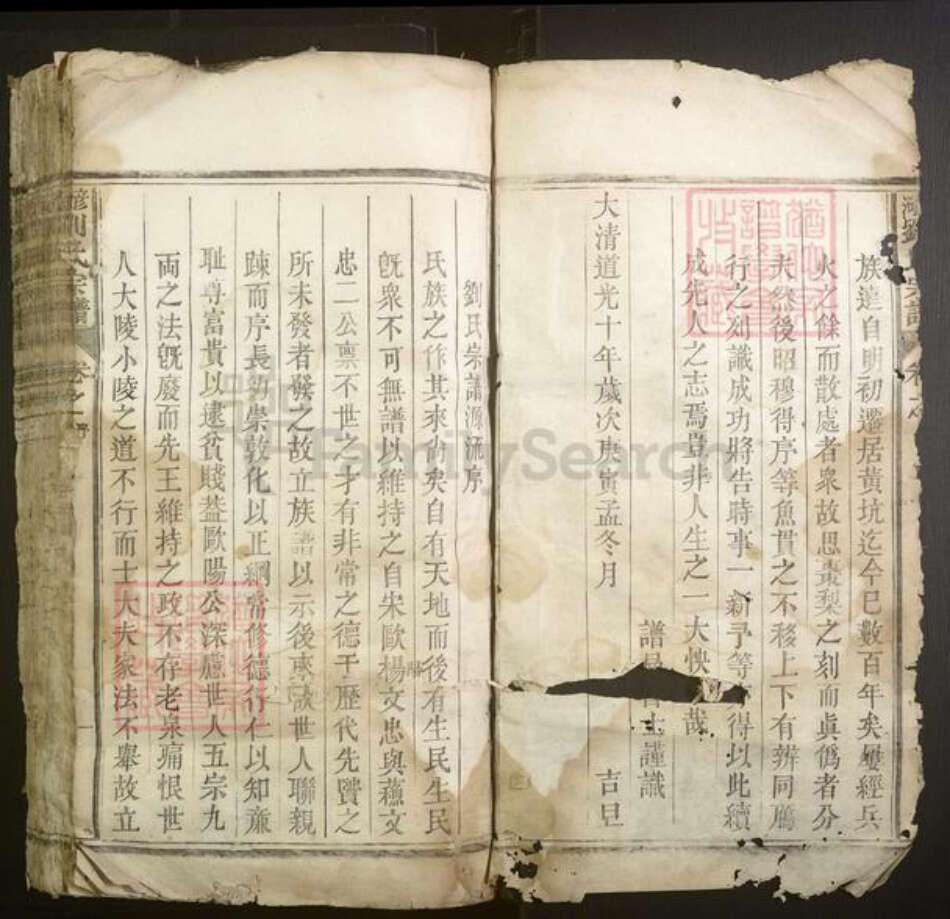 族達自明初遷居黃坑迄今已數百年矣屢經兵
火之餘而散處者衆故思棗梨之刻而眞僞者分
夫然後昭穆得序等魚貫之不移上下有辨同鴈
行之列識成功將告時事一新予等得以此續
成先人之志焉豈非人生之一大快哉
譜士謹識
大清道光十年歲次庚寅孟冬月 吉旦
劉氏宗譜源流序
民族之作其來尙矣自有天地而後有生民生民
旣衆不可無譜以維持之自宋歐楊文忠與蘓文
忠二公禀不世之才有非常之德于歷代先賢之
所未發者發之故立族譜以示後來故世人聯親
踈而序長幼崇敎化以正綱常修德行仁以知亷
耻尊富貴以逮貧賤葢歐陽公深慮世人五宗九
兩之法旣廢而先王維持之政不存老泉痛恨世
人大陵小陵之道不行而士大夫家法不舉故立
劉氏宗譜 卷之
FamilySearch